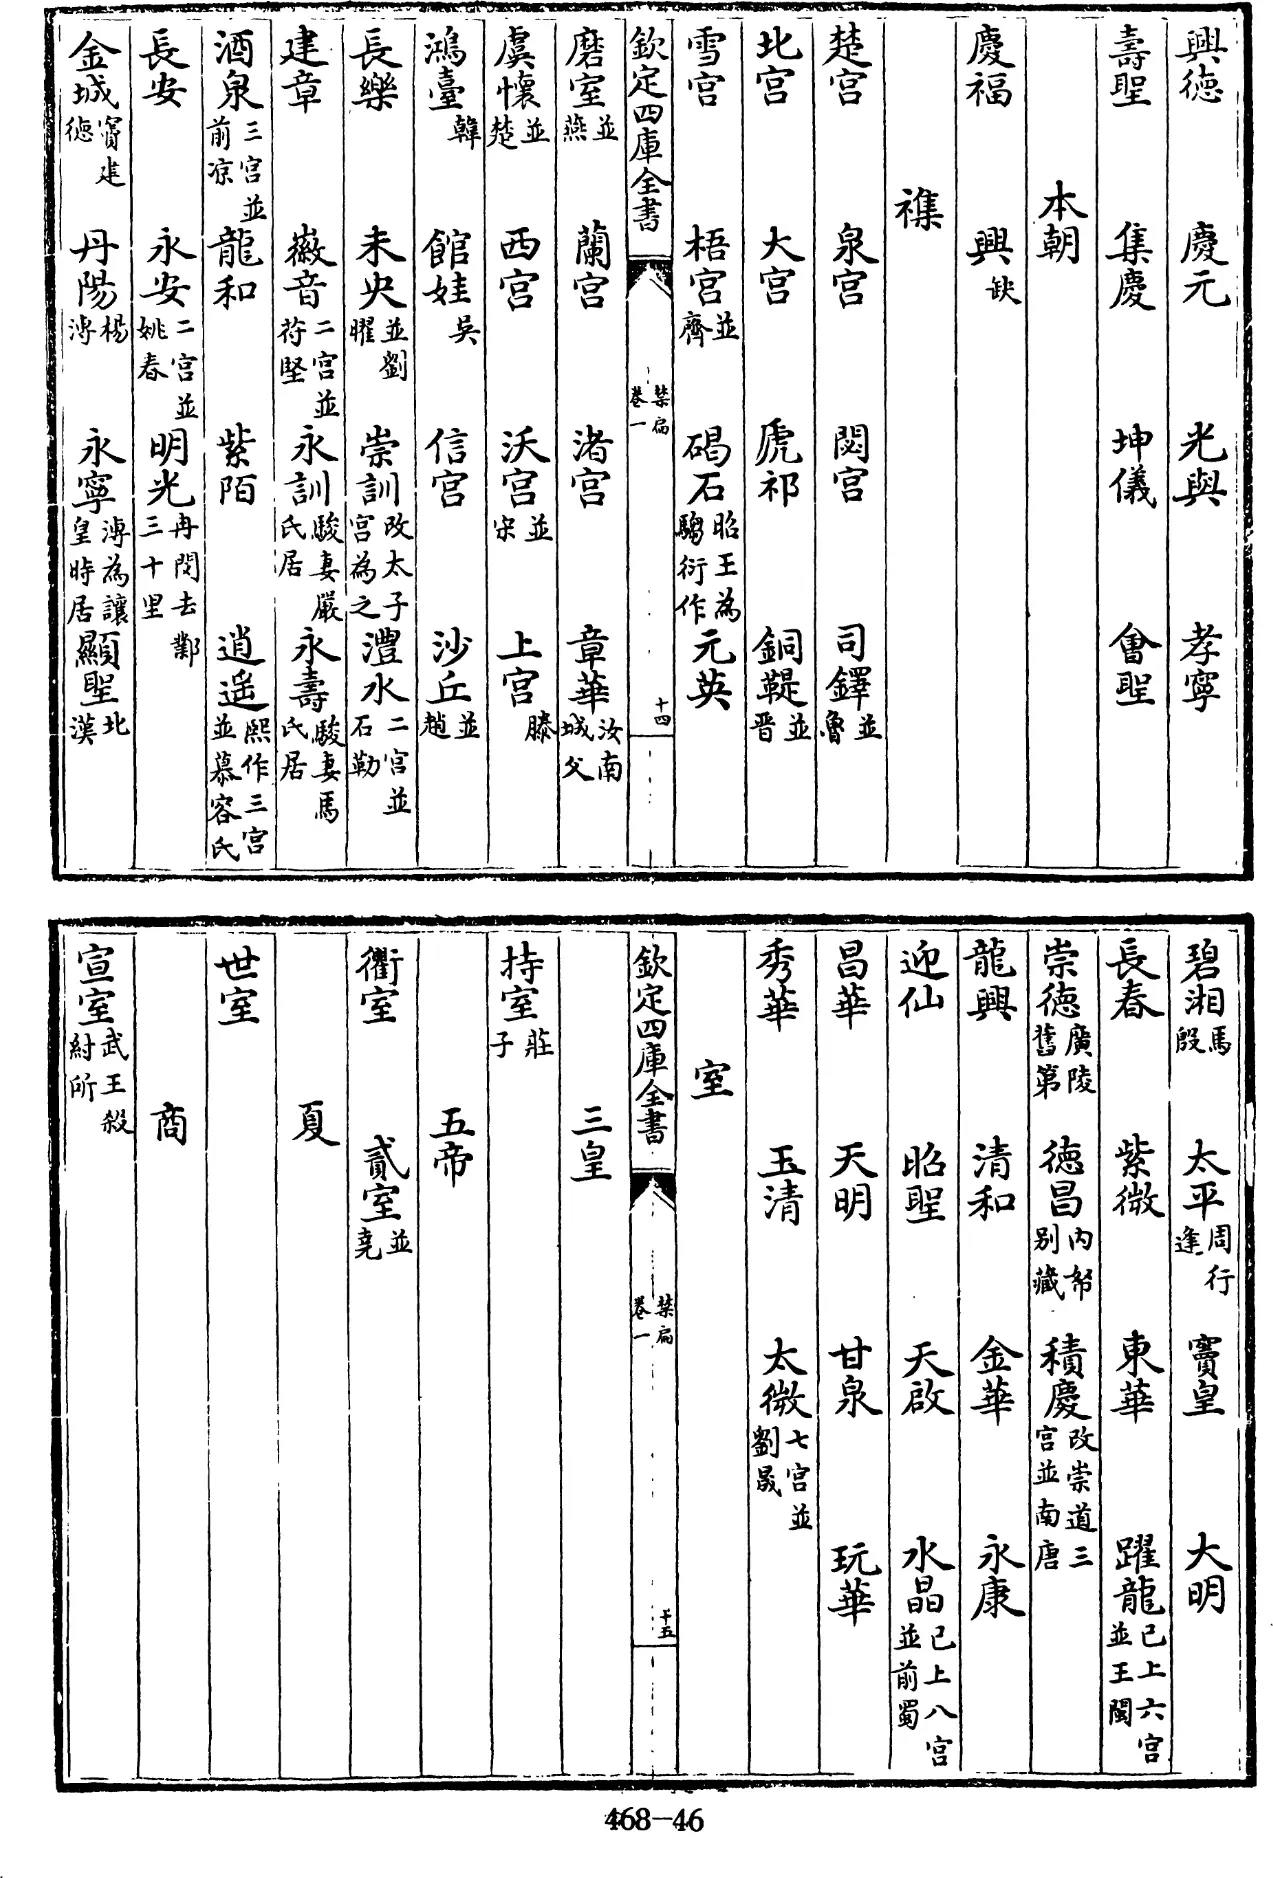 興徳 慶元 光興 孝寧
壽聖 集慶 坤儀 會聖
本朝
慶福 興缺
襍
楚宫 泉宫 閟宫 司鐸並魯
北宫 大宫 虒祁 銅鞮並晋
雪宫 梧宫並齊 碣石昭王為騶衍作 元英
欽定四庫全書 禁扁 卷一 十四
磨室並燕 蘭宫 渚宫 章華汝南城父
虞懐並楚 西宫 沃宫並宋 上宫滕
鴻臺韓 館娃吳 信宫 沙丘並趙
長樂 未央並劉曜 崇訓改太子宫為之 澧水二宫並石勒
建章 徽音二宫並苻堅 永訓駿妻嚴氏居 永壽駿妻馬氏居
酒泉三宫並前凉 龍和 紫陌 逍遥熙作三宫並慕容氏
長安 永安二宫並姚春 明光冉閔去鄴三十里
金城竇建徳 丹陽楊溥 永寧溥為讓皇時居 顯聖北漢
碧湘馬殷 太平周行逢 寶皇 大明
長春 紫微 東華 躍龍已上六宫並王閩
崇徳廣陵舊第 徳昌内帑别藏 積慶改崇道三宫並南唐
龍興 清和 金華 永康
迎仙 昭聖 天啟 水晶已上八宫並前蜀
昌華 天明 甘泉 玩華
秀華 玉清 太微七宫並劉晟
室
欽定四庫全書 禁扁 卷一 十五
三皇
持室莊子
五帝
衢室 貳室並堯
夏
世室
商
宣室武王殺紂所
468-46